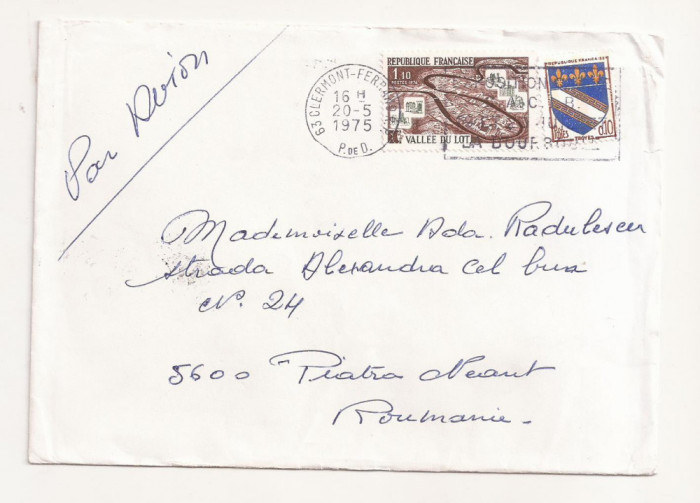 Par Avion
63 CLERMONT-FERR
16 H
20-5
1975
P. DE D.
REPUBLIQUE FRANÇAISE
1,10
POSTES 1974
VALLÉE DU LOT
REPUBLIQUE FRANCAISE
0,10
LA BOURBOULE
Mademoiselle Ada. Radulescu
strada Alexandra Cel bun
N°. 24
5600 Piatra Neant
Roumanie.